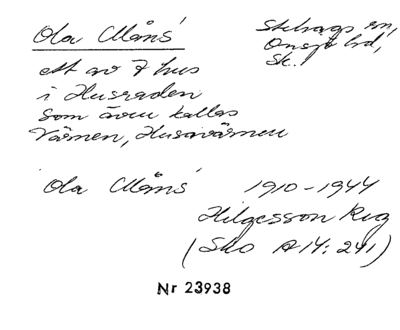 Ola Måns'
Stehags sn,
Onsjö hd,
Sk.
ett av 7 hus
i Husraden
som även kallas
Värmen, Husavärmen
Ola Måns' 1910-1944
Hilgesson Reg
(Sko A14: 241)
Nr 23938